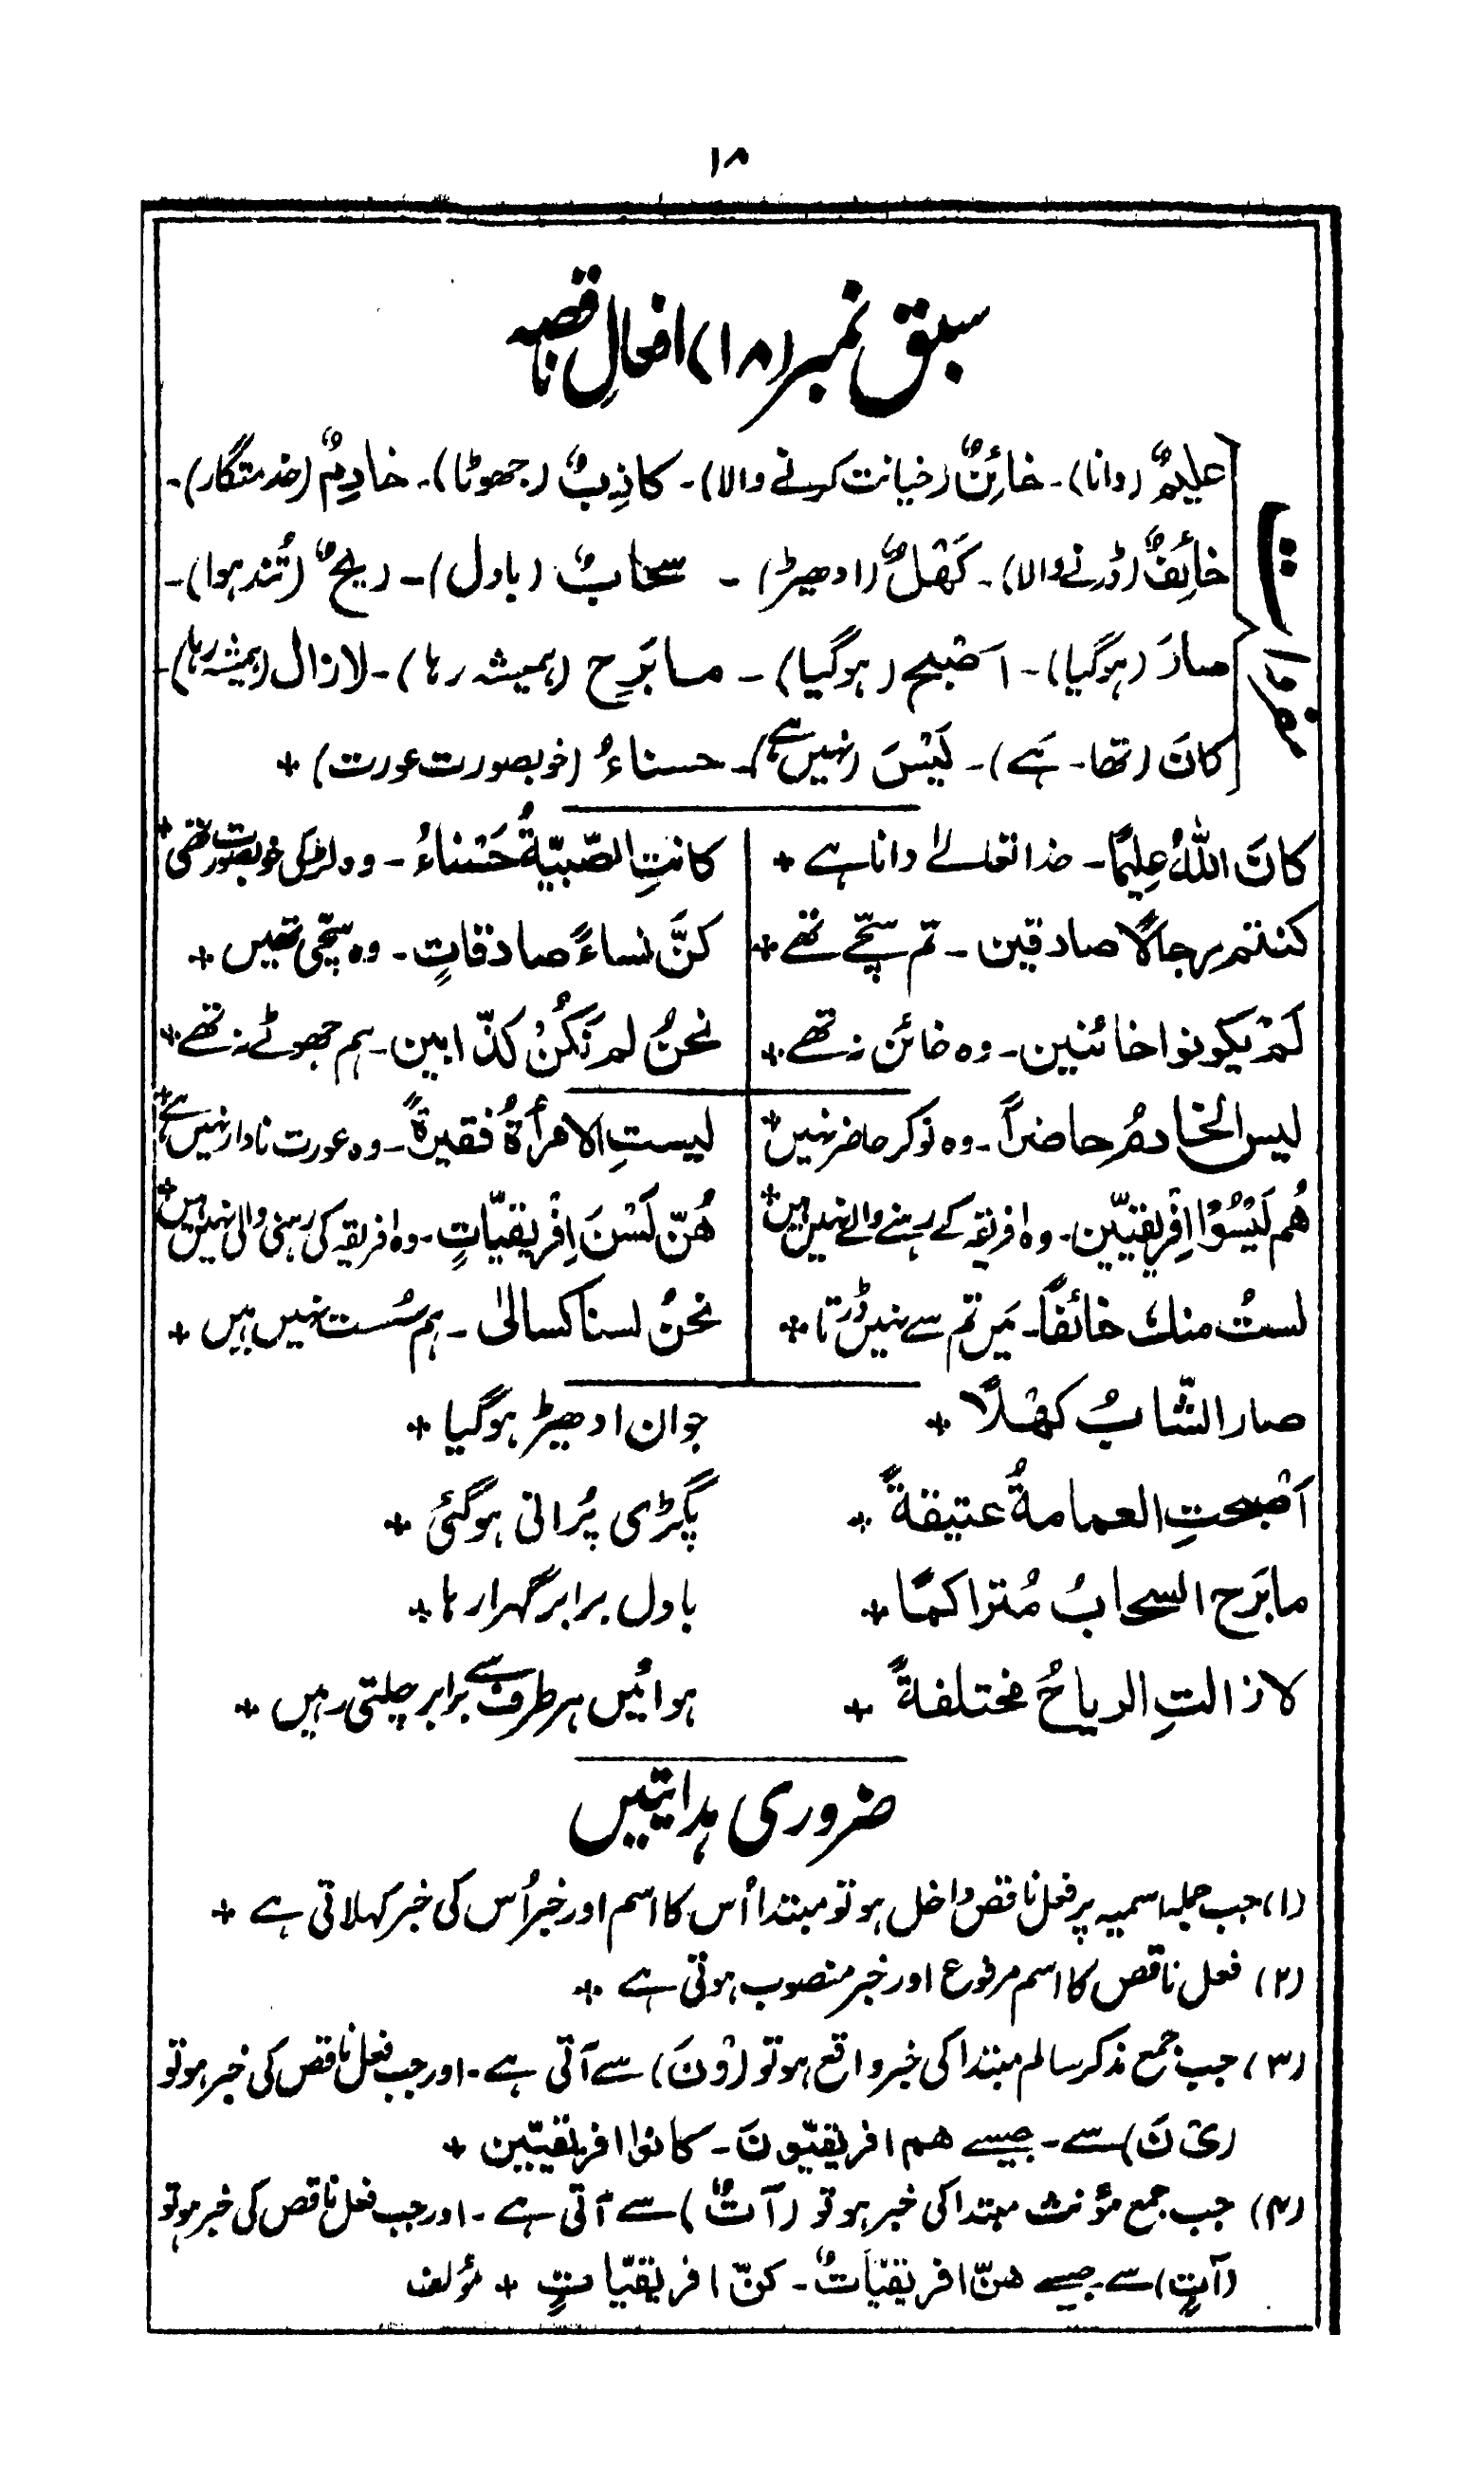 ۱۸
سبق نمبر (۱۸) افعالِ ناقصہ
مفردات
علیمٌ (دانا)۔ خائِنٌ (خیانت کرنے والا)۔ کاذِبٌ (جھوٹا)۔ خادِمٌ (خدمتگار)۔
خائِفٌ (ڈرنے والا)۔ کَھْلٌ (ادھیڑ)۔ سحابٌ (بادل)۔ ریحٌ (تُند ہوا)۔
صارَ (ہوگیا)۔ اَصْبح (ہوگیا)۔ مابَرِح (ہمیشہ رہا)۔ لازال (ہمیشہ رہا)۔
کانَ (تھا۔ ہَے)۔ لَیْسَ (نہیں ہے)۔ حسناءُ (خوبصورت عورت) +
کانَ اللّٰہُ عِلیمًا۔ خدا تعالےٰ دانا ہے +
کانتِ الصّبیّۃُ حَسْناءُ۔ وہ لڑکی خوبصورت تھی +
کنتم رجالًا صادقین۔ تم سچّے تھے +
کنَّ نساءً صادقاتٍ۔ وہ سچّی تھیں +
لَمْ یکونوا خائنین۔ وہ خائن نہ تھے +
نحنُ لم نَکُنْ کذّابین۔ ہم جھوٹے نہ تھے +
لیس الخادمُ حاضراً۔ وہ نوکر حاضر نہیں +
لیستِ الامرأۃُ فقیرۃً۔ وہ عورت نادار نہیں ہے +
ھُم لَیْسُوْا اِفْریقیّین۔ وہ افریقہ کے رہنے والے نہیں ہیں +
ھُنّ لَسْنَ اِفْریقیّاتٍ۔ وہ افریقہ کی رہنی والی نہیں ہیں +
لستُ منك خائفًا۔ مَیں تم سے نہیں ڈرتا +
نحنُ لسنا کسالیٰ۔ ہم سُست نہیں ہیں +
صار الشّابُ کھْلًا +
جوان ادھیڑ ہوگیا +
اَصْبحتِ العمامۃُ عتیقۃً +
پگڑی پُرانی ہوگئی +
مابَرَح السحابُ مُتراکمًا +
بادل برابر گہرا رہا +
لازالتِ الریاحُ مختلفۃً +
ہوائیں ہر طرف سے برابر چلتی رہیں +
ضروری ہدایتیں
(۱) جب جملہ اسمیہ پر فعل ناقص داخل ہو تو مبتدا اُس کا اسم اور خبر اُس کی خبر کہلاتی ہے +
(۲) فعل ناقص کا اسم مرفوع اور خبر منصوب ہوتی ہے +
(۳) جب جمع مذکر سالم مبتدا کی خبر واقع ہو تو (وْنَ) سے آتی ہے۔ اور جب فعل ناقص کی خبر ہو تو
(یْ نَ) سے۔ جیسے ھم افریقیّونَ۔ کانوا افریقیّین +
(۴) جب جمع مؤنث مبتدا کی خبر ہو تو (آتٌ) سے آتی ہے۔ اور جب فعل ناقص کی خبر ہو تو
(آتٍ) سے جیسے ھنّ افریقیّاتٌ۔ کنّ افریقیّاتٍ + مؤلف